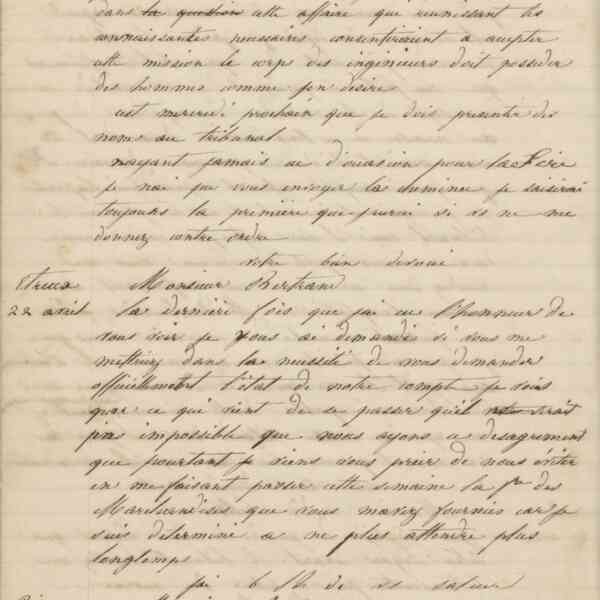 dans la question cette affaire que reunissant les
connaissantes necessaires consentiraient a accepter
cette mission le corps des ingénieurs doit posseder
des hommes comme j'en desire
cest mercredi prochain que je dois presenter des
noms au tribunal
nayant jamais eu d'ocasion pour la
je nai pu vous envoyer la je saisirai
toujours la première que j'aurai si vs ne me
donnez contre ordre
votre bien devoué
Etreux Monsieur Bertrand
22 avril la dernière fois que jai eu l'honneur de
vous voir je vous ai demandé si vous me
mettriez dans la necessité de vous demander
officiellement l'état de notre compte je vois
par ce qui vient de se passer qu'il serait
pas impossible que nous ayons ce desagrement
que pourtant je viens vous prier de nous éviter
en me faisant passer cette semaine la fre des
Marchandises que vous mavez fournies car je
suis determiné a ne plus attendre plus
longtemps
jai l de vs saluer